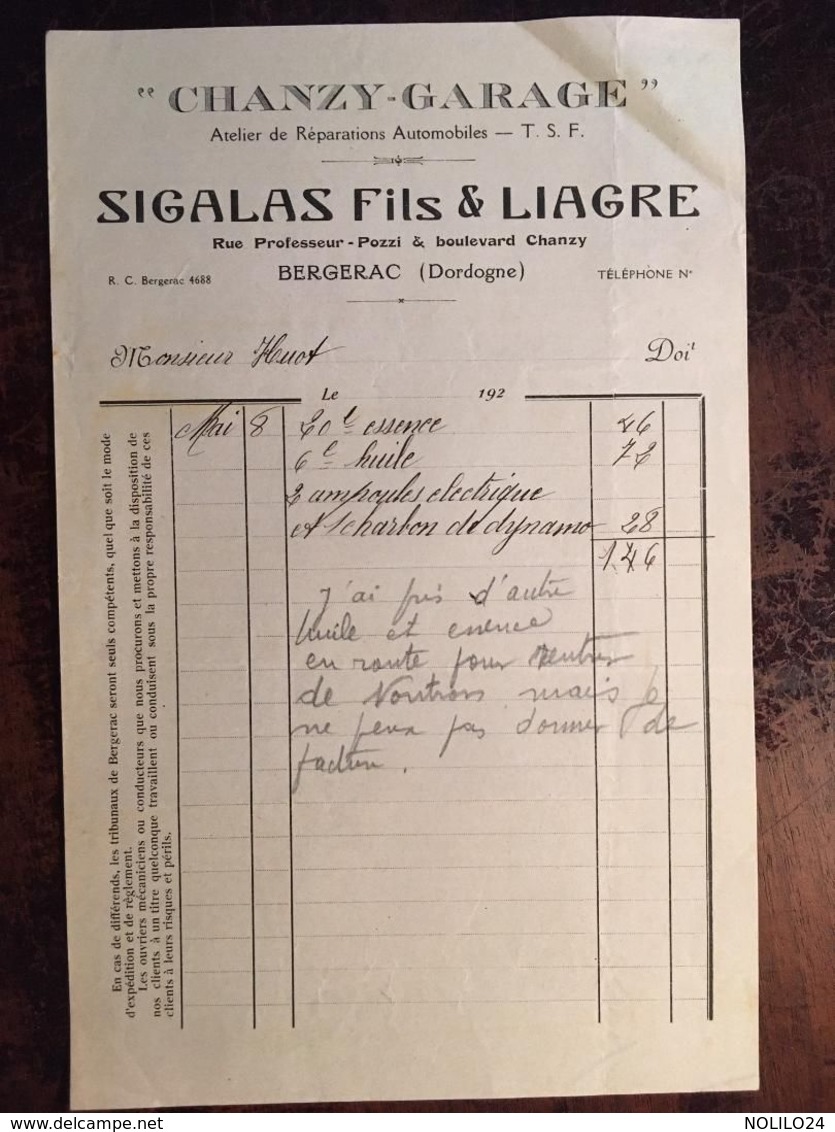 “ CHANZY-GARAGE ”
Atelier de Réparations Automobiles — T. S. F.
SIGALAS Fils & LIAGRE
Rue Professeur-Pozzi & boulevard Chanzy
R. C. Bergerac 4688 BERGERAC (Dordogne) TÉLÉPHONE N°
Monsieur Huot Doit
Le 192
Mai 8 20 l essence 46
6 l huile 72
2 ampoules electrique
et 1 charbon de dynamo 28
146
J'ai pris d'autre
huile et essence
en route pour rentrer
de Nontron mais je
ne peux pas donner de
facture.
En cas de différends, les tribunaux de Bergerac seront seuls compétents, quel que soit le mode
d'expédition et de règlement.
Les ouvriers mécaniciens ou conducteurs que nous procurons et mettons à la disposition de
nos clients à un titre quelconque travaillent ou conduisent sous la propre responsabilité de ces
clients à leurs risques et périls.
NOLILO24